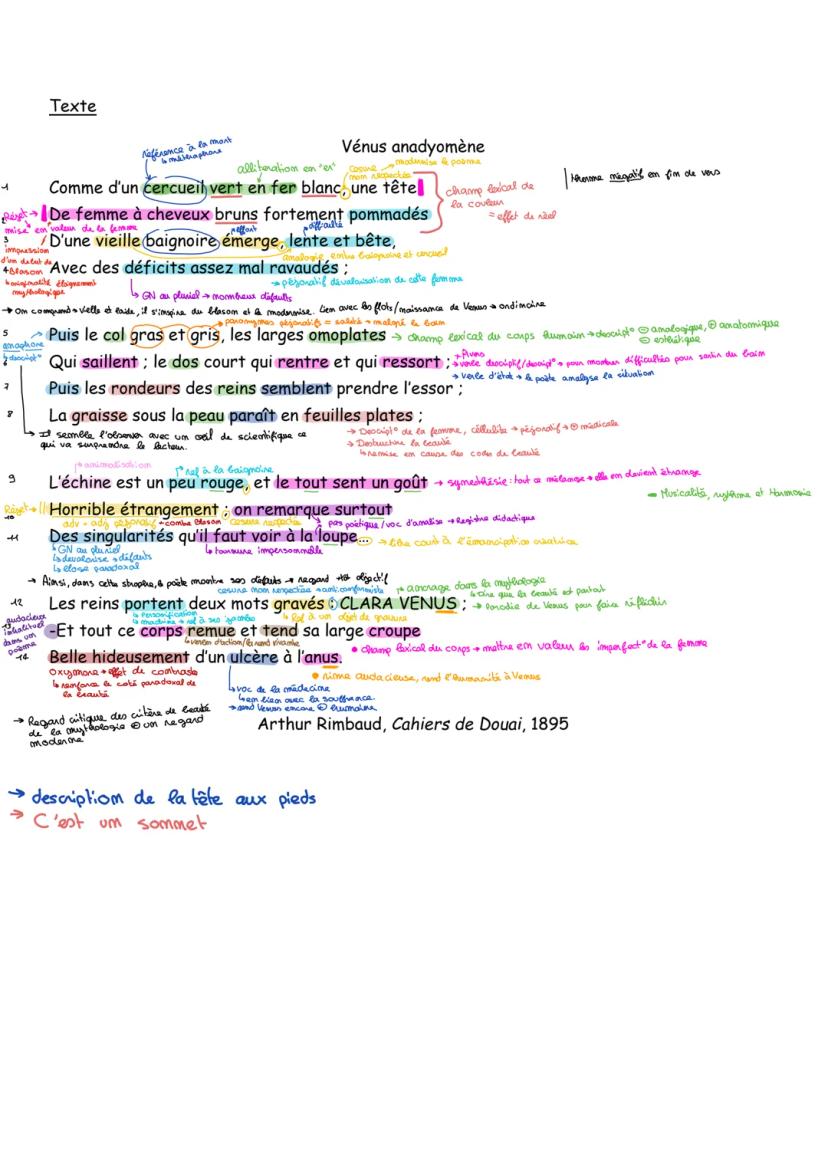 Texte
référence à la mort
↳ métaphore
Vénus anadyomène
alliteration en "er"
césure non respectée → modernise le poème
1 Comme d'un cercueil vert en fer blanc, une tête
terme négatif en fin de vers
champ lexical de la couleur
= effet de réel
Rejet →
2 De femme à cheveux bruns fortement pommadés
mise en valeur de la femme
effort
difficulté
3 D'une vieille baignoire émerge, lente et bête,
impression d'un début de Blason
↳ originalité éloignement mythologique
analogie entre baignoire et cercueil
4 Avec des déficits assez mal ravaudés ;
→ péjoratif dévalorisation de cette femme
↳ GN au pluriel → nombreux défauts
→ On comprend → vieille et laide, il s'inspire du blason et le modernise. Lien avec les flots/naissance de Venus → ordinaire
→ paronymes péjoratifs = saleté → malgré le bain
5 Puis le col gras et gris, les larges omoplates
→ champ lexical du corps humain → descript° ⊖ analogique, ⊕ anatomique
⊖ esthétique
anaphore
↳ descript°
6 Qui saillent ; le dos court qui rentre et qui ressort ;
→ verbe descriptif/descript° → pour montrer difficultés pour sortir du bain
→ verbe d'état → le poète analyse la situation
7 Puis les rondeurs des reins semblent prendre l'essor ;
8 La graisse sous la peau paraît en feuilles plates ;
→ Il semble l'observer avec un œil de scientifique ce qui va surprendre le lecteur.
→ Descript° de la femme, cellulite → péjoratif → ⊕ médicale
→ Destructure la beauté
↳ remise en cause des codes de beauté
→ animalisation
→ ref à la baignoire
9 L'échine est un peu rouge, et le tout sent un goût
→ synesthésie : tout ce mélange → elle en devient étrange
Musicalité, rythme et Harmonie
Rejet →
10 Horrible étrangement ; on remarque surtout
adv + adj péjoratif → contre Blason
césure respectée
→ pas poétique/voc d'analyse → Registre didactique
11 Des singularités qu'il faut voir à la loupe…
→ libre court à l'émancipation créatrice
↳ GN au pluriel
↳ dévalorise → défauts
↳ éloge paradoxal
↳ tournure impersonnelle
→ Ainsi, dans cette strophe, le poète montre ses défauts → regard tôt objectif
césure non respectée → anticonformiste
→ ancrage dans la mythologie
→ dire que la beauté est partout
12 Les reins portent deux mots gravés : CLARA VENUS ;
→ Parodie de Venus pour faire réfléchir
↳ Personnification
↳ machine → ref à ses jambes
↳ Ref à un objet de gravure
audacieux inhabituel dans un poème
13 -Et tout ce corps remue et tend sa large croupe
↳ verbes d'action/la rend vivante
• champ lexical du corps → mettre en valeur les imperfect° de la femme
14 Belle hideusement d'un ulcère à l'anus.
oxymore → effet de contraste
↳ renforce le coté paradoxal de la beauté
• rime audacieuse, rend l'humanité à Venus
↳ voc de la médecine
↳ en lien avec la souffrance.
→ rend Venus encore ⊕ humaine
→ Regard critique des critère de beauté de la mythologie ⊕ un regard moderne
Arthur Rimbaud, Cahiers de Douai, 1895
→ description de la tête aux pieds
→ C'est un sommet